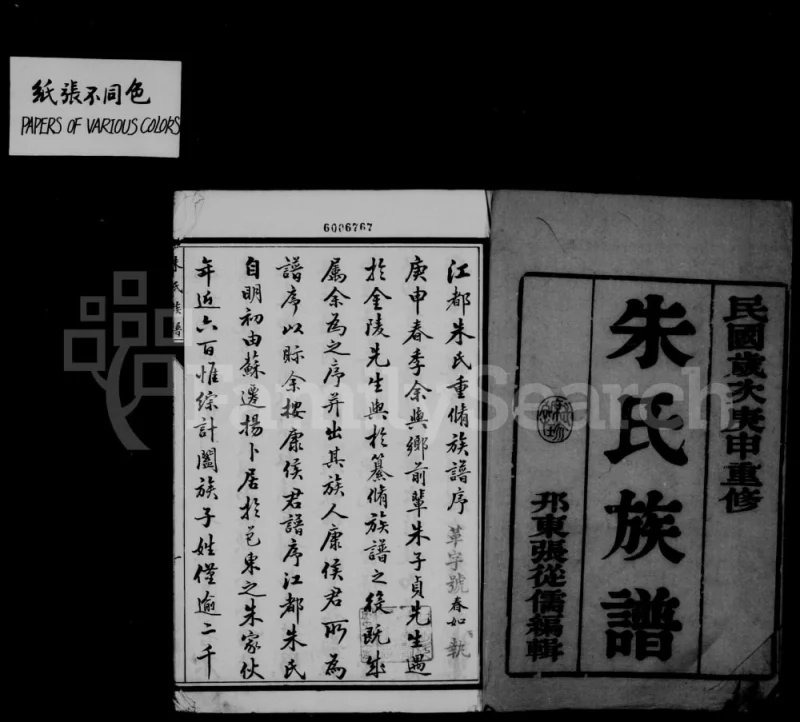 紙張不同色
PAPERS OF VARIOUS COLORS
6006767
民國歲次庚申重修
朱氏族譜
邗東張從儒編輯
江都朱氏重脩族譜序 革字號 春如 執
庚申春季余與鄉前輩朱子貞先生遇
於金陵先生與於纂脩族譜之役既成
属余為之序并出其族人康侯君所為
譜序以眎余按康侯君譜序江都朱氏
自明初由蘇遷揚卜居於邑東之朱家伙
年近六百惟綜計闔族子姓僅逾二千
朱氏族譜
FamilySearch